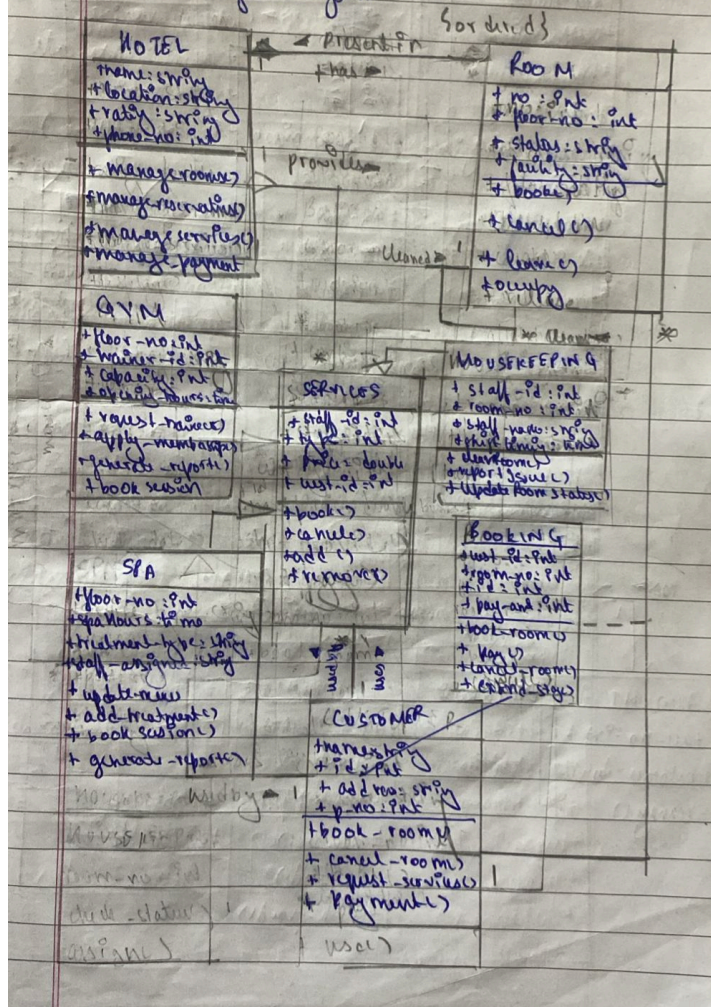 {ordered}
HOTEL
+name: string
+location: string
+ratig: string
+phone-no: int
+ managerooms()
+manage reservations()
+manage services()
+manage-payment
◄ Present in
+has ►
ROOM
+ no: int
+ floor-no: int
+ status: string
+ facility: string
+ book()
+ cancel()
+ leave()
+occupy
1
provides
Cleaned
1
*
GYM
+floor-no: int
+ trainer-id: int
+ capacity: int
+ opening-hours: time
+ request-trainer()
+ apply-membership()
+generate-report()
+book session
*
SERVICES
+staff-id: int
+ type: int
+ price: double
+ cust-id: int
+book()
+cancel()
+add()
+remove()
HOUSEKEEPING
+ staff-id: int
+ room-no: int
+ staff-name: string
+shift timing: time
+ cleanroom()
+report Issue()
+ Update Room Status()
BOOKING
+cust-id: int
+room-no: int
+id: int
+ pay-amt: int
+book-room()
+ Pay()
+cancel-room()
+ extend-stay()
SPA
+floor-no: int
+spaHours: time
+treatment-type: string
+staff-assigned: string
+ update-menu
+ add-treatment()
+ book session()
+ generate-report()
CUSTOMER
+name: string
+ id: int
+ address: string
+ p-no: int
+book-room()
+ cancel-room()
+ request-services()
+ Payment()
used by
1
1
use()
assign()